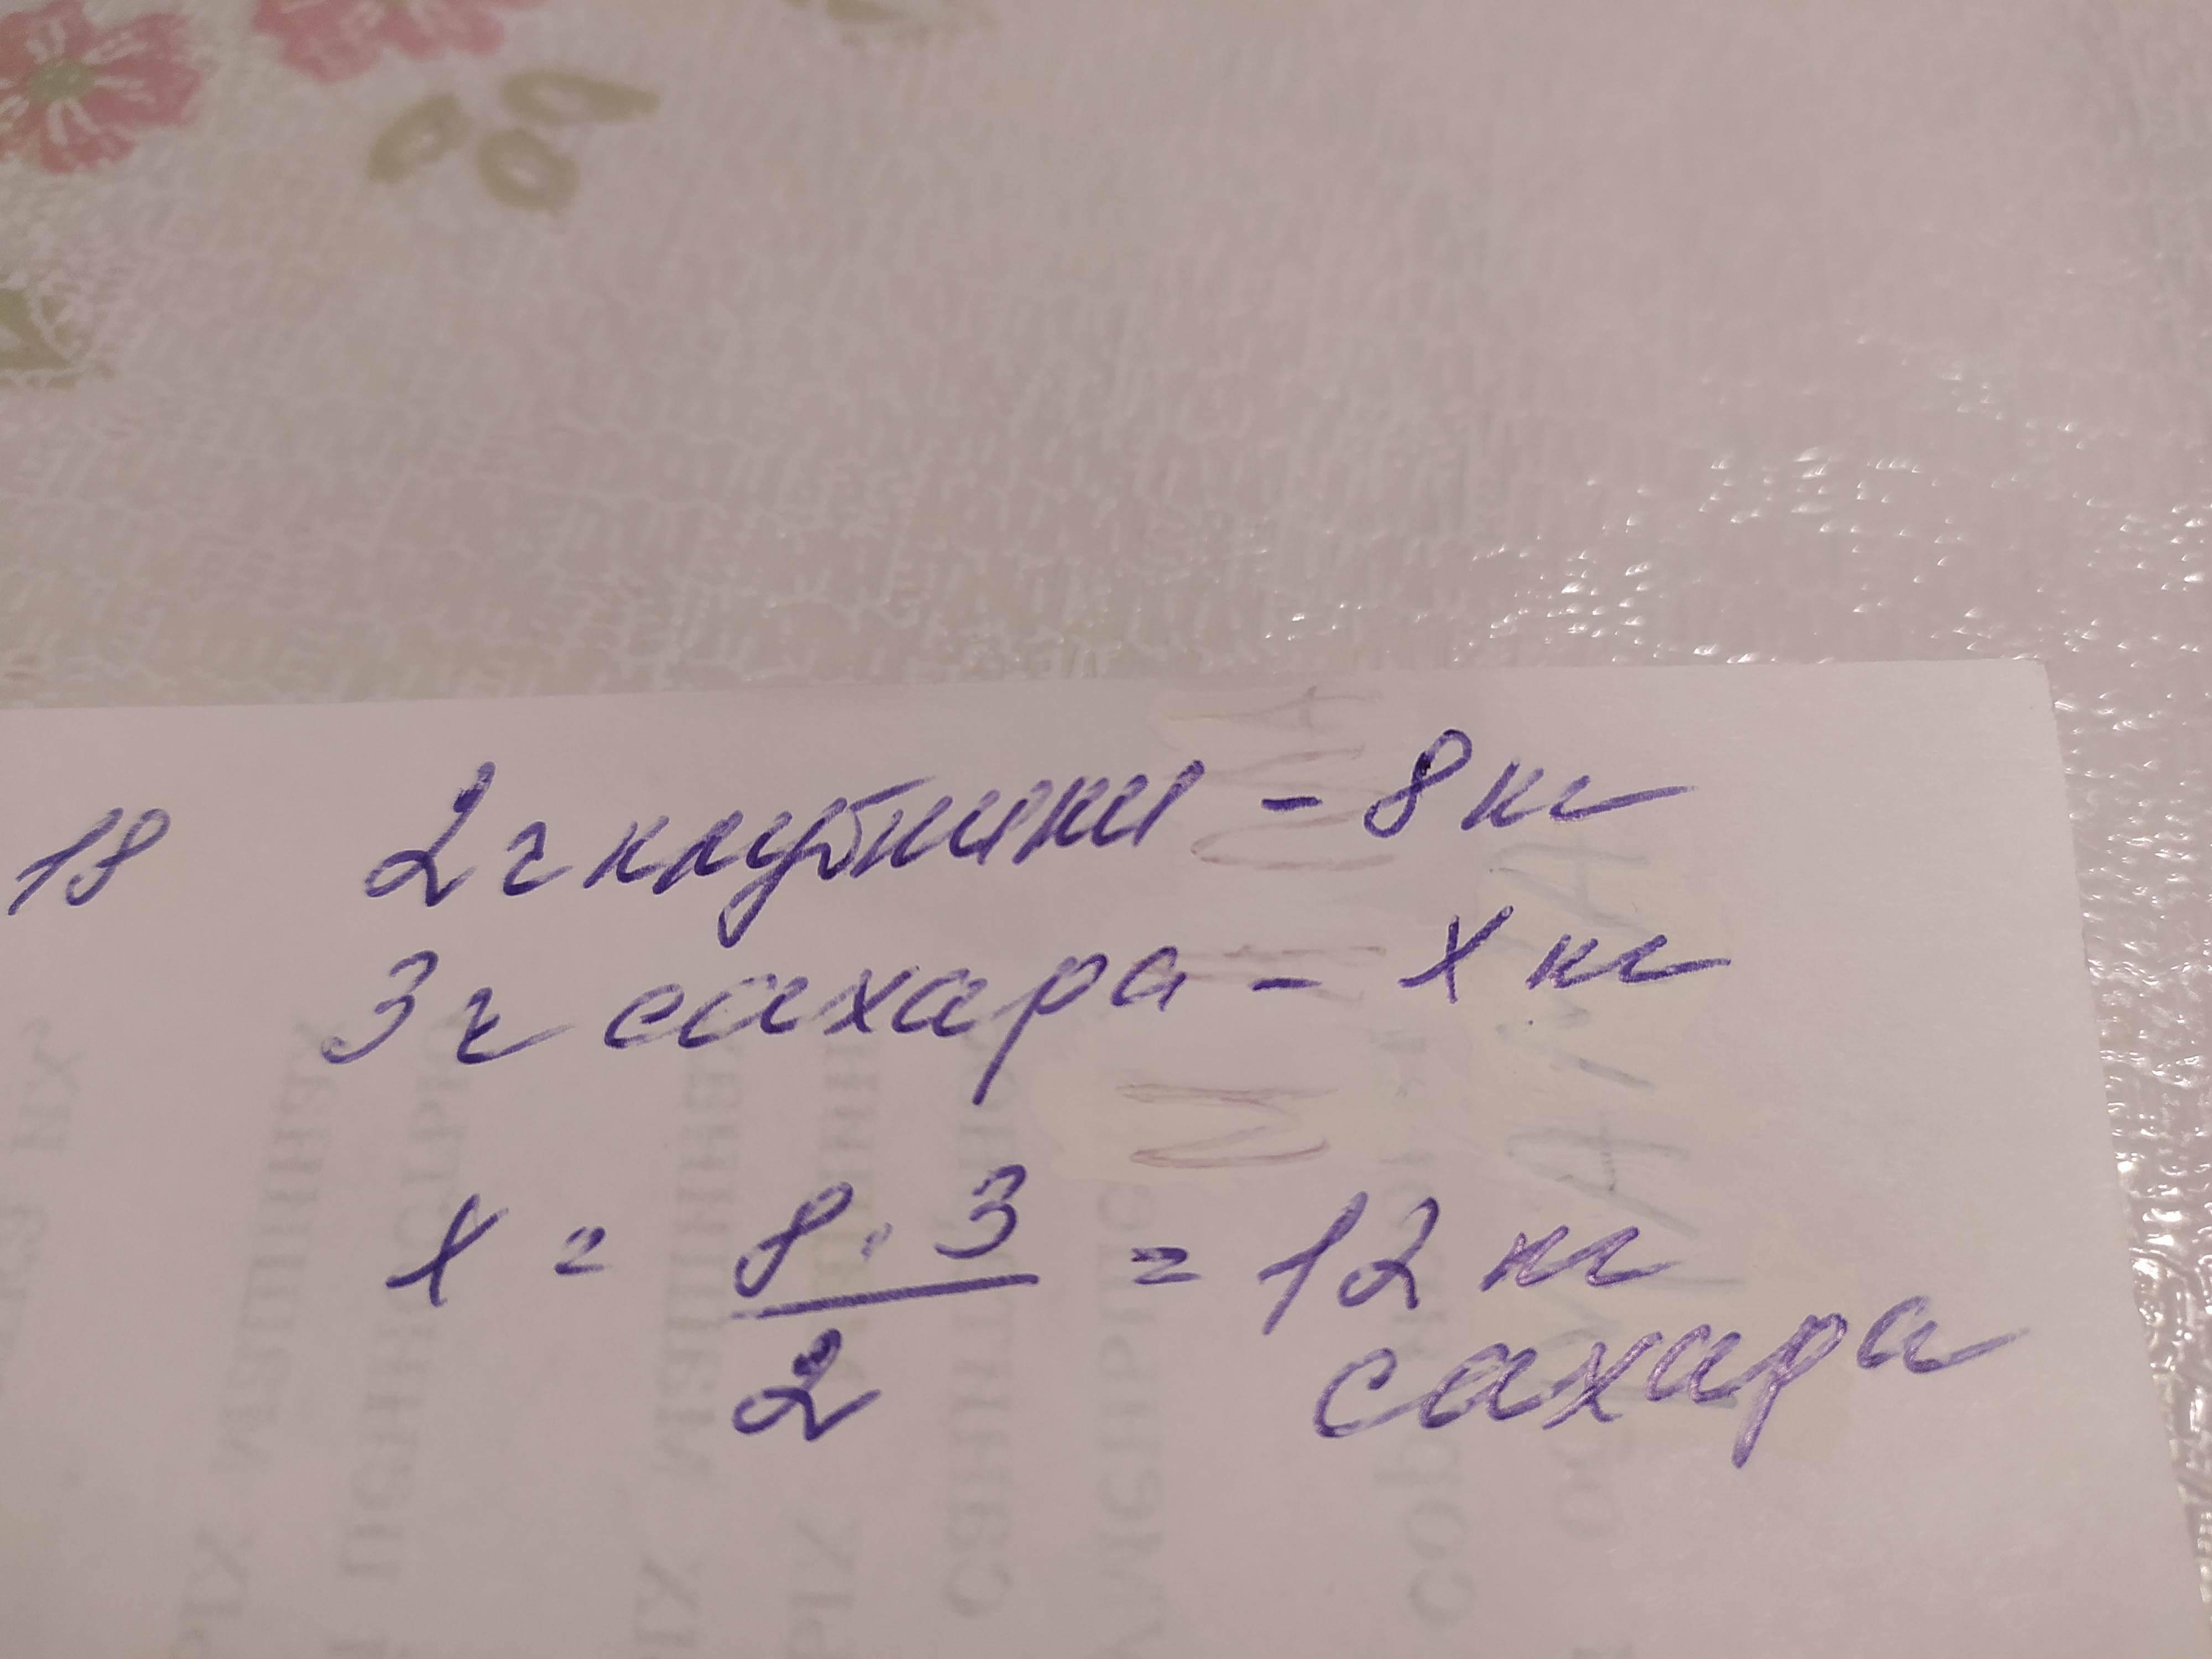 18 2 г клубники - 8 кг
3 г сахара - х кг
х = 8 · 3 / 2 = 12 кг
сахара